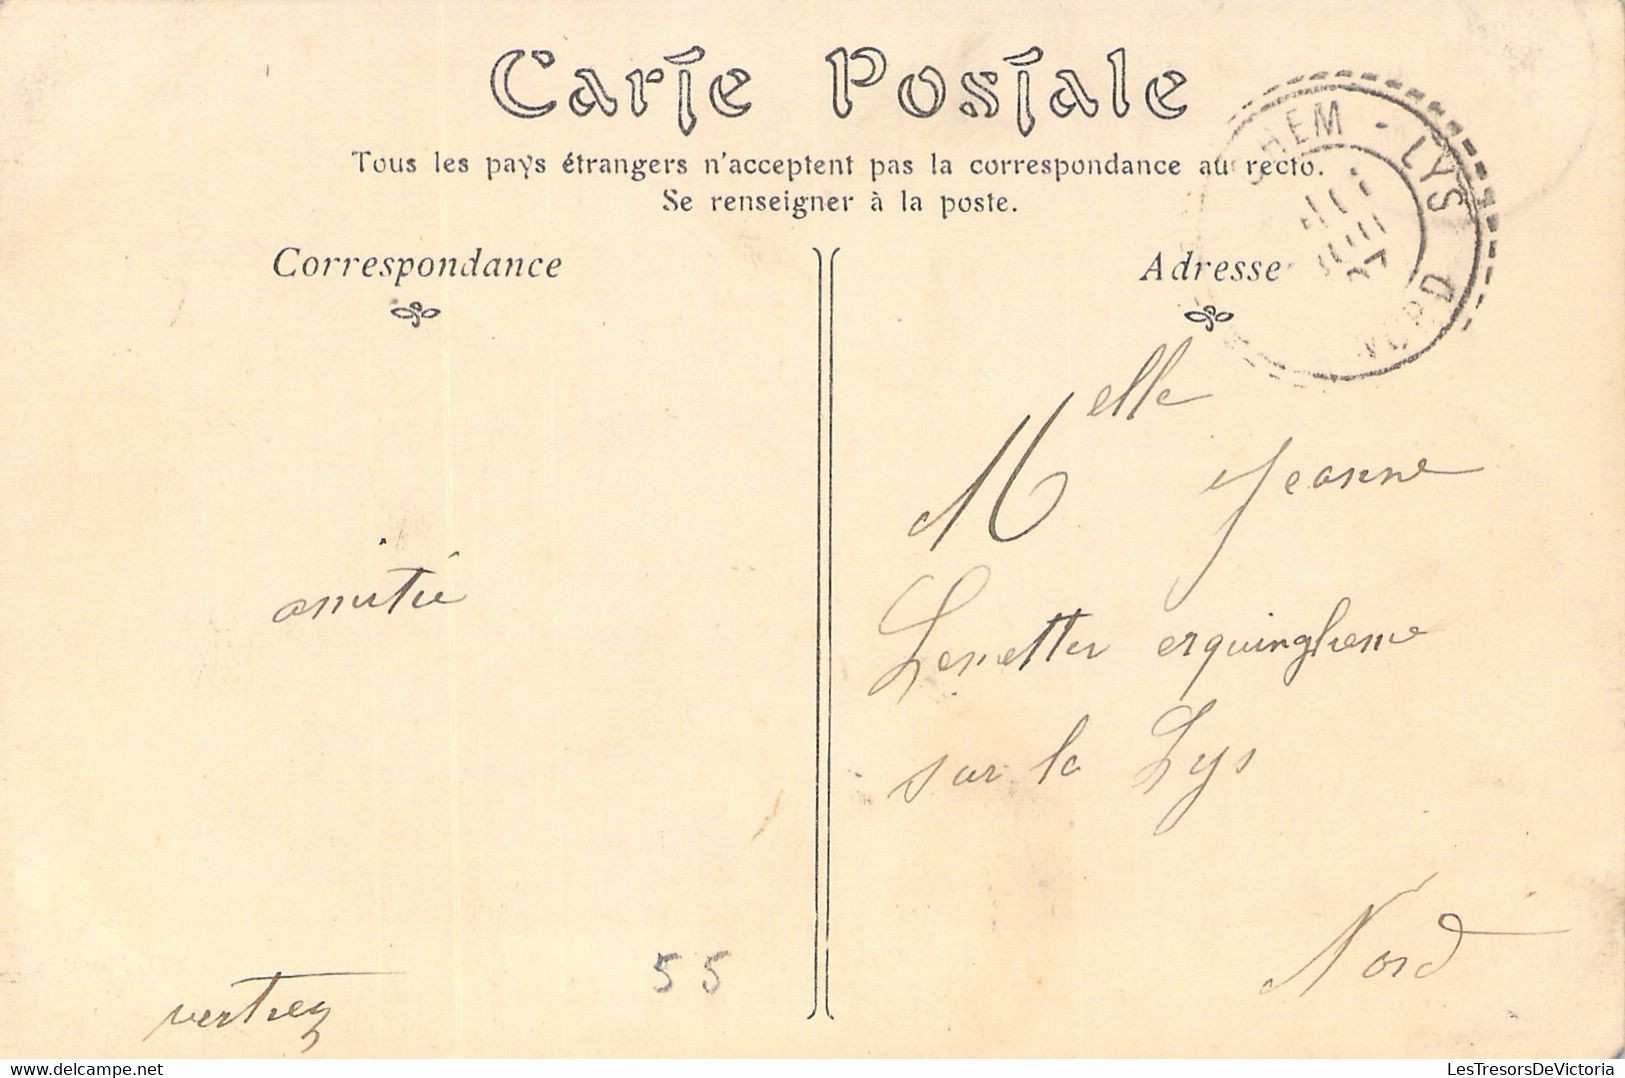 Carte Postale
Tous les pays étrangers n'acceptent pas la correspondance au recto.
Se renseigner à la poste.
Correspondance
Adresse
HEM - LYS
NORD
Melle Jeanne
erquinghem
sur la Lys
Nord
amitié
55
LesTresorsDeVictoria